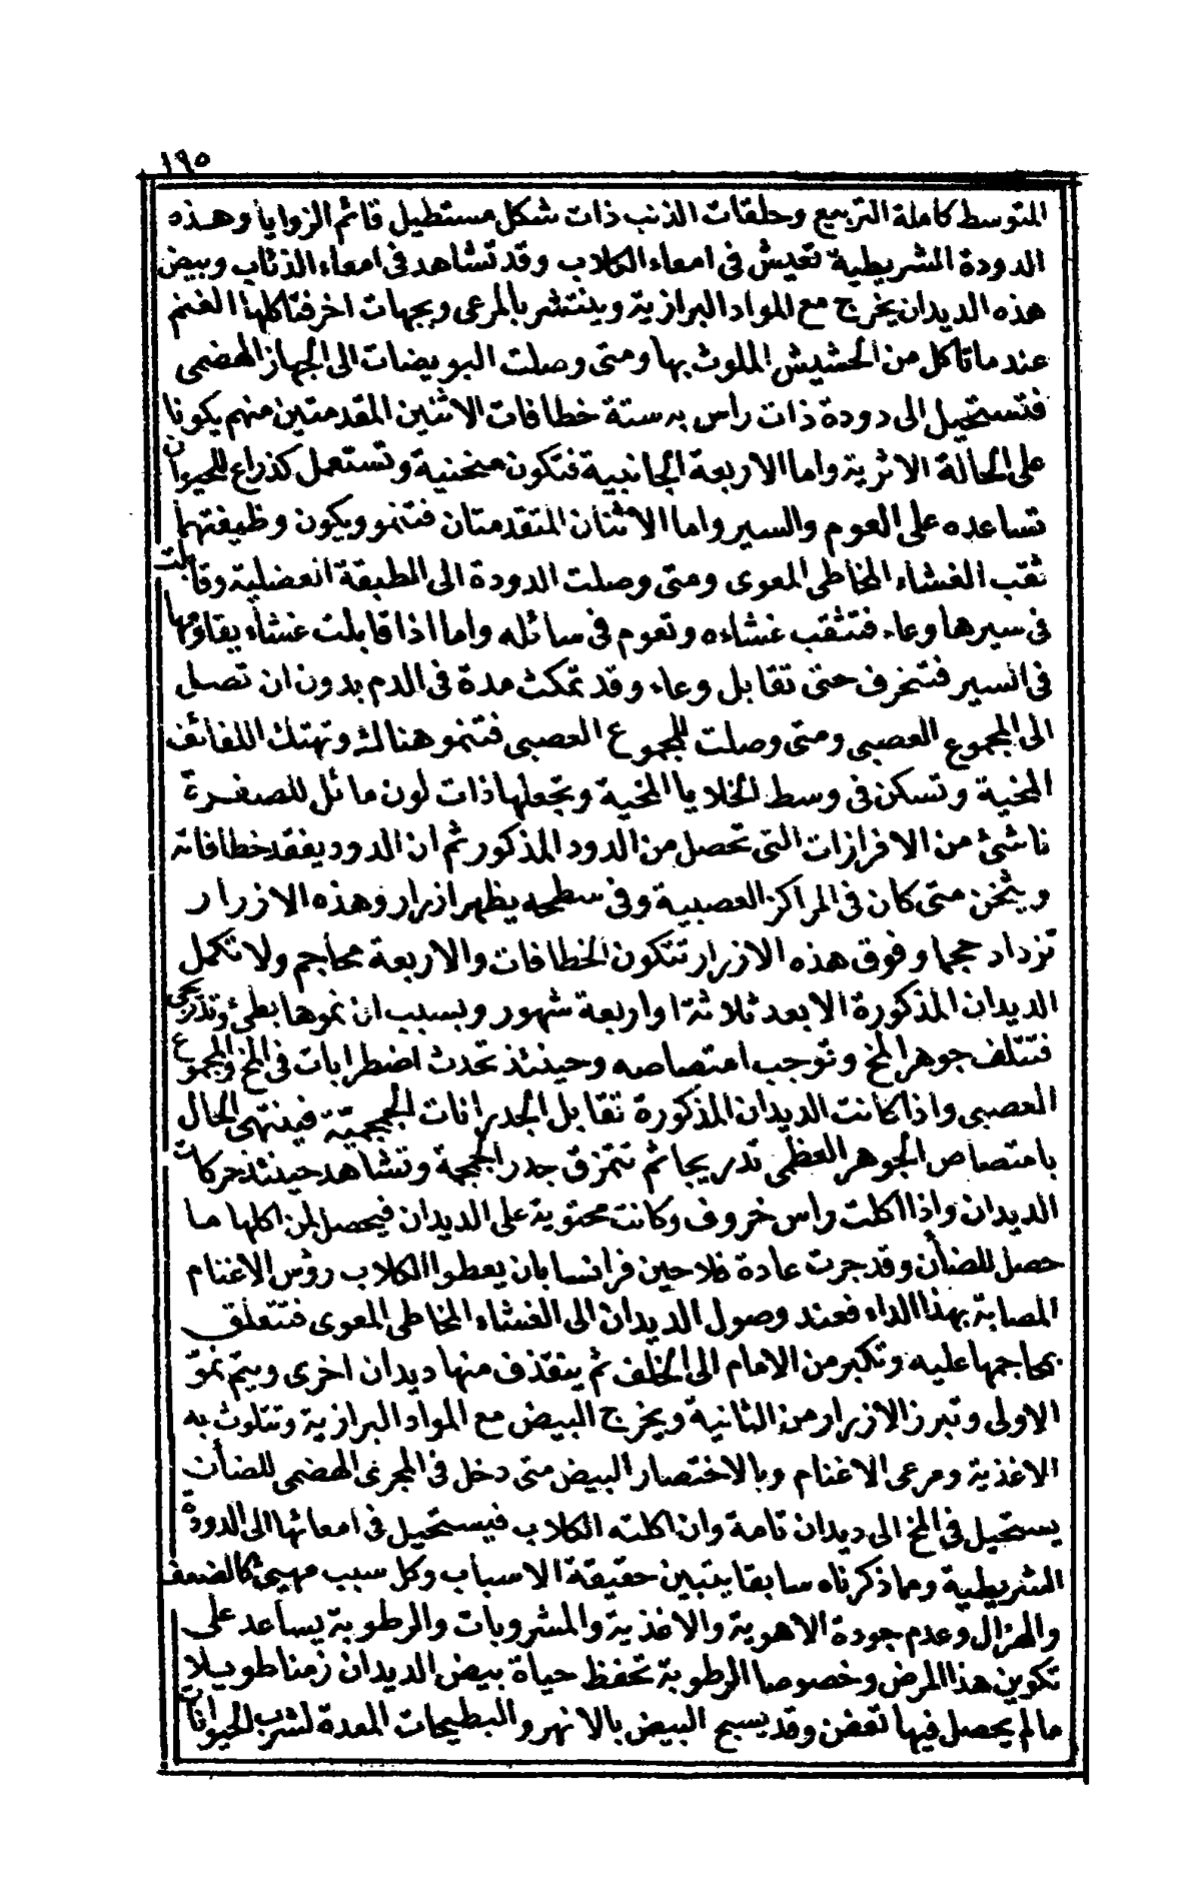 ١٩٥
المتوسط كاملة التربيع وحلقات الذنب ذات شكل مستطيل قائم الزوايا وهذه
الدودة الشريطية تعيش فى امعاء الكلاب وقد تشاهد فى امعاء الذئاب وبيض
هذه الديدان يخرج مع المواد البرازية وينتشر بالمرعى وبجهات اخر فتاكلها الغنم
عند ما تاكل من الحشيش الملوث بها ومتى وصلت البويضات الى الجهاز الهضمى
فتستحيل الى دودة ذات راس به ستة خطافات الاثنين المقدمتين منهم يكونا
على الحالة الاثرية واما الاربعة الجانبية فتكون منحنية وتستعمل كذراع للحيوان
تساعده على العوم والسير واما الاثنان المتقدمتان فتنمو ويكون وظيفتهما
ثقب الغشاء المخاطى المعوى ومتى وصلت الدودة الى الطبقة العضلية وقابلت
فى سيرها وعاء فتثقب غشاءه وتعوم فى سائله واما اذا قابلت غشاء يقاومها
فى السير فتنحرف حتى تقابل وعاء وقد تمكث مدة فى الدم بدون ان تصل
الى المجموع العصبى ومتى وصلت للمجموع العصبى فتنمو هناك وتهتك اللفائف
المخية وتسكن فى وسط الخلايا المخية وتجعلها ذات لون مائل للصفرة
ناشئ من الافرازات التى تحصل من الدود المذكور ثم ان الدود يفقد خطافاته
ويثخن متى كان فى المراكز العصبية وفى سطحه يظهر ازرار وهذه الازرار
تزداد حجما وفوق هذه الازرار تتكون الخطافات والاربعة محاجم ولا تكمل
الديدان المذكورة الا بعد ثلاثة او اربعة شهور وبسبب ان نموها بطئ وتدريجى
فتتلف جوهر المخ وتوجب امتصاصه وحينئذ تحدث اضطرابات فى المخ والمجموع
العصبى واذا كانت الديدان المذكورة تقابل الجدرانات الجمجمية فينتهى الحال
بامتصاص الجوهر العظمى تدريجا ثم تتمزق جدر الجمجمة وتشاهد حينئذ حركات
الديدان واذا اكلت راس خروف وكانت محتوية على الديدان فيحصل لمن اكلها ما
حصل للضأن وقد جرت عادة فلاحين فرانسا بان يعطوا الكلاب روس الاغنام
المصابة بهذا الداء فعند وصول الديدان الى الغشاء المخاطى المعوى فتتعلق
بمحاجمها عليه وتكبر من الامام الى الخلف ثم ينقذف منها ديدان اخرى ويتم نموّ
الاولى وتبرز الازرار من الثانية ويخرج البيض مع المواد البرازية وتتلوث به
الاغذية ومرعى الاغنام وبالاختصار البيض متى دخل فى المجرى الهضمى للضأن
يستحيل فى المخ الى ديدان تامة وان اكلته الكلاب فيستحيل فى امعائها الى الدودة
الشريطية ومما ذكرناه سابقا يتبين حقيقة الاسباب وكل سبب مهيئ كالضعف
والهزال وعدم جودة الاهوية والاغذية والمشروبات والرطوبة يساعد على
تكوين هذا المرض وخصوصا الرطوبة تحفظ حياة بيض الديدان زمنا طويلا
مالم يحصل فيها تعفن وقد يسبح البيض بالانهر والبطيحات المعدة لشرب الحيوانات